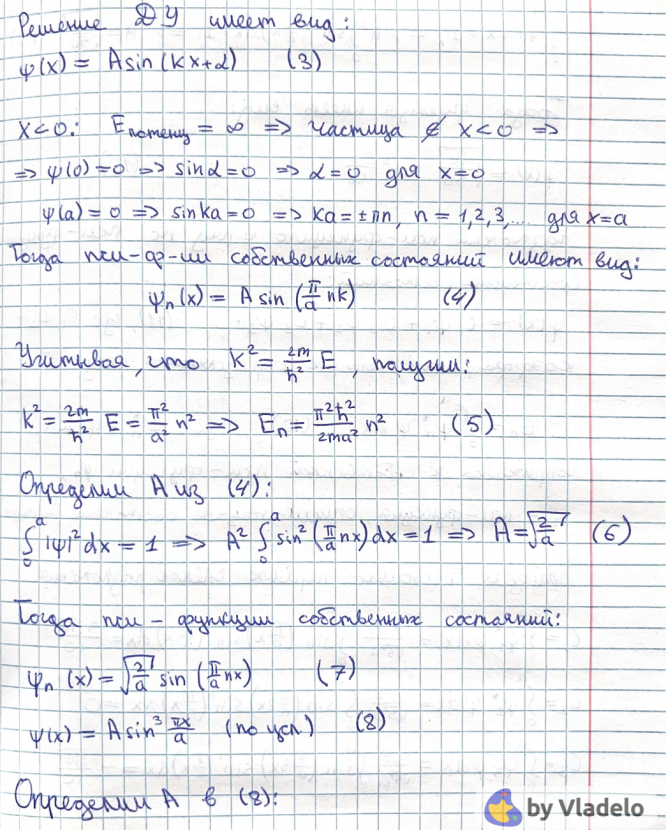 Решение ДУ имеет вид:
ψ(x) = A sin(kx+α) (3)
x<0: Eпотенц = ∞ => частица ∉ x<0 =>
=> ψ(0)=0 => sinα=0 => α=0 для x=0
ψ(a)=0 => sinka=0 => ka=±πn, n=1,2,3,... для x=a
Тогда пси-ф-ии собственных состояний имеют вид:
ψₙ(x) = A sin (π/a nk) (4)
Учитывая, что k² = 2m/ħ² E, получим:
k² = 2m/ħ² E = π²/a² n² => Eₙ = π²ħ²/2ma² n² (5)
Определим A из (4):
∫₀ᵃ |ψ|² dx = 1 => A² ∫₀ᵃ sin² (π/a nx) dx = 1 => A = √(2/a) (6)
Тогда пси-функции собственных состояний:
ψₙ(x) = √(2/a) sin (π/a nx) (7)
ψ(x) = A sin³ πx/a (по усл.) (8)
Определим A в (8):
by Vladelo